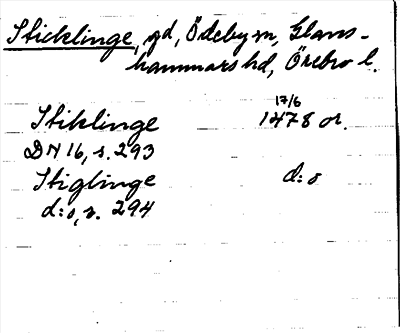 Sticklinge, gd, Ödeby sn, Glans-
hammars hd, Örebro l.
Stiklinge 17/6 1478 or.
DN 16, s. 293
Stiglinge d:o
d:o, s. 294